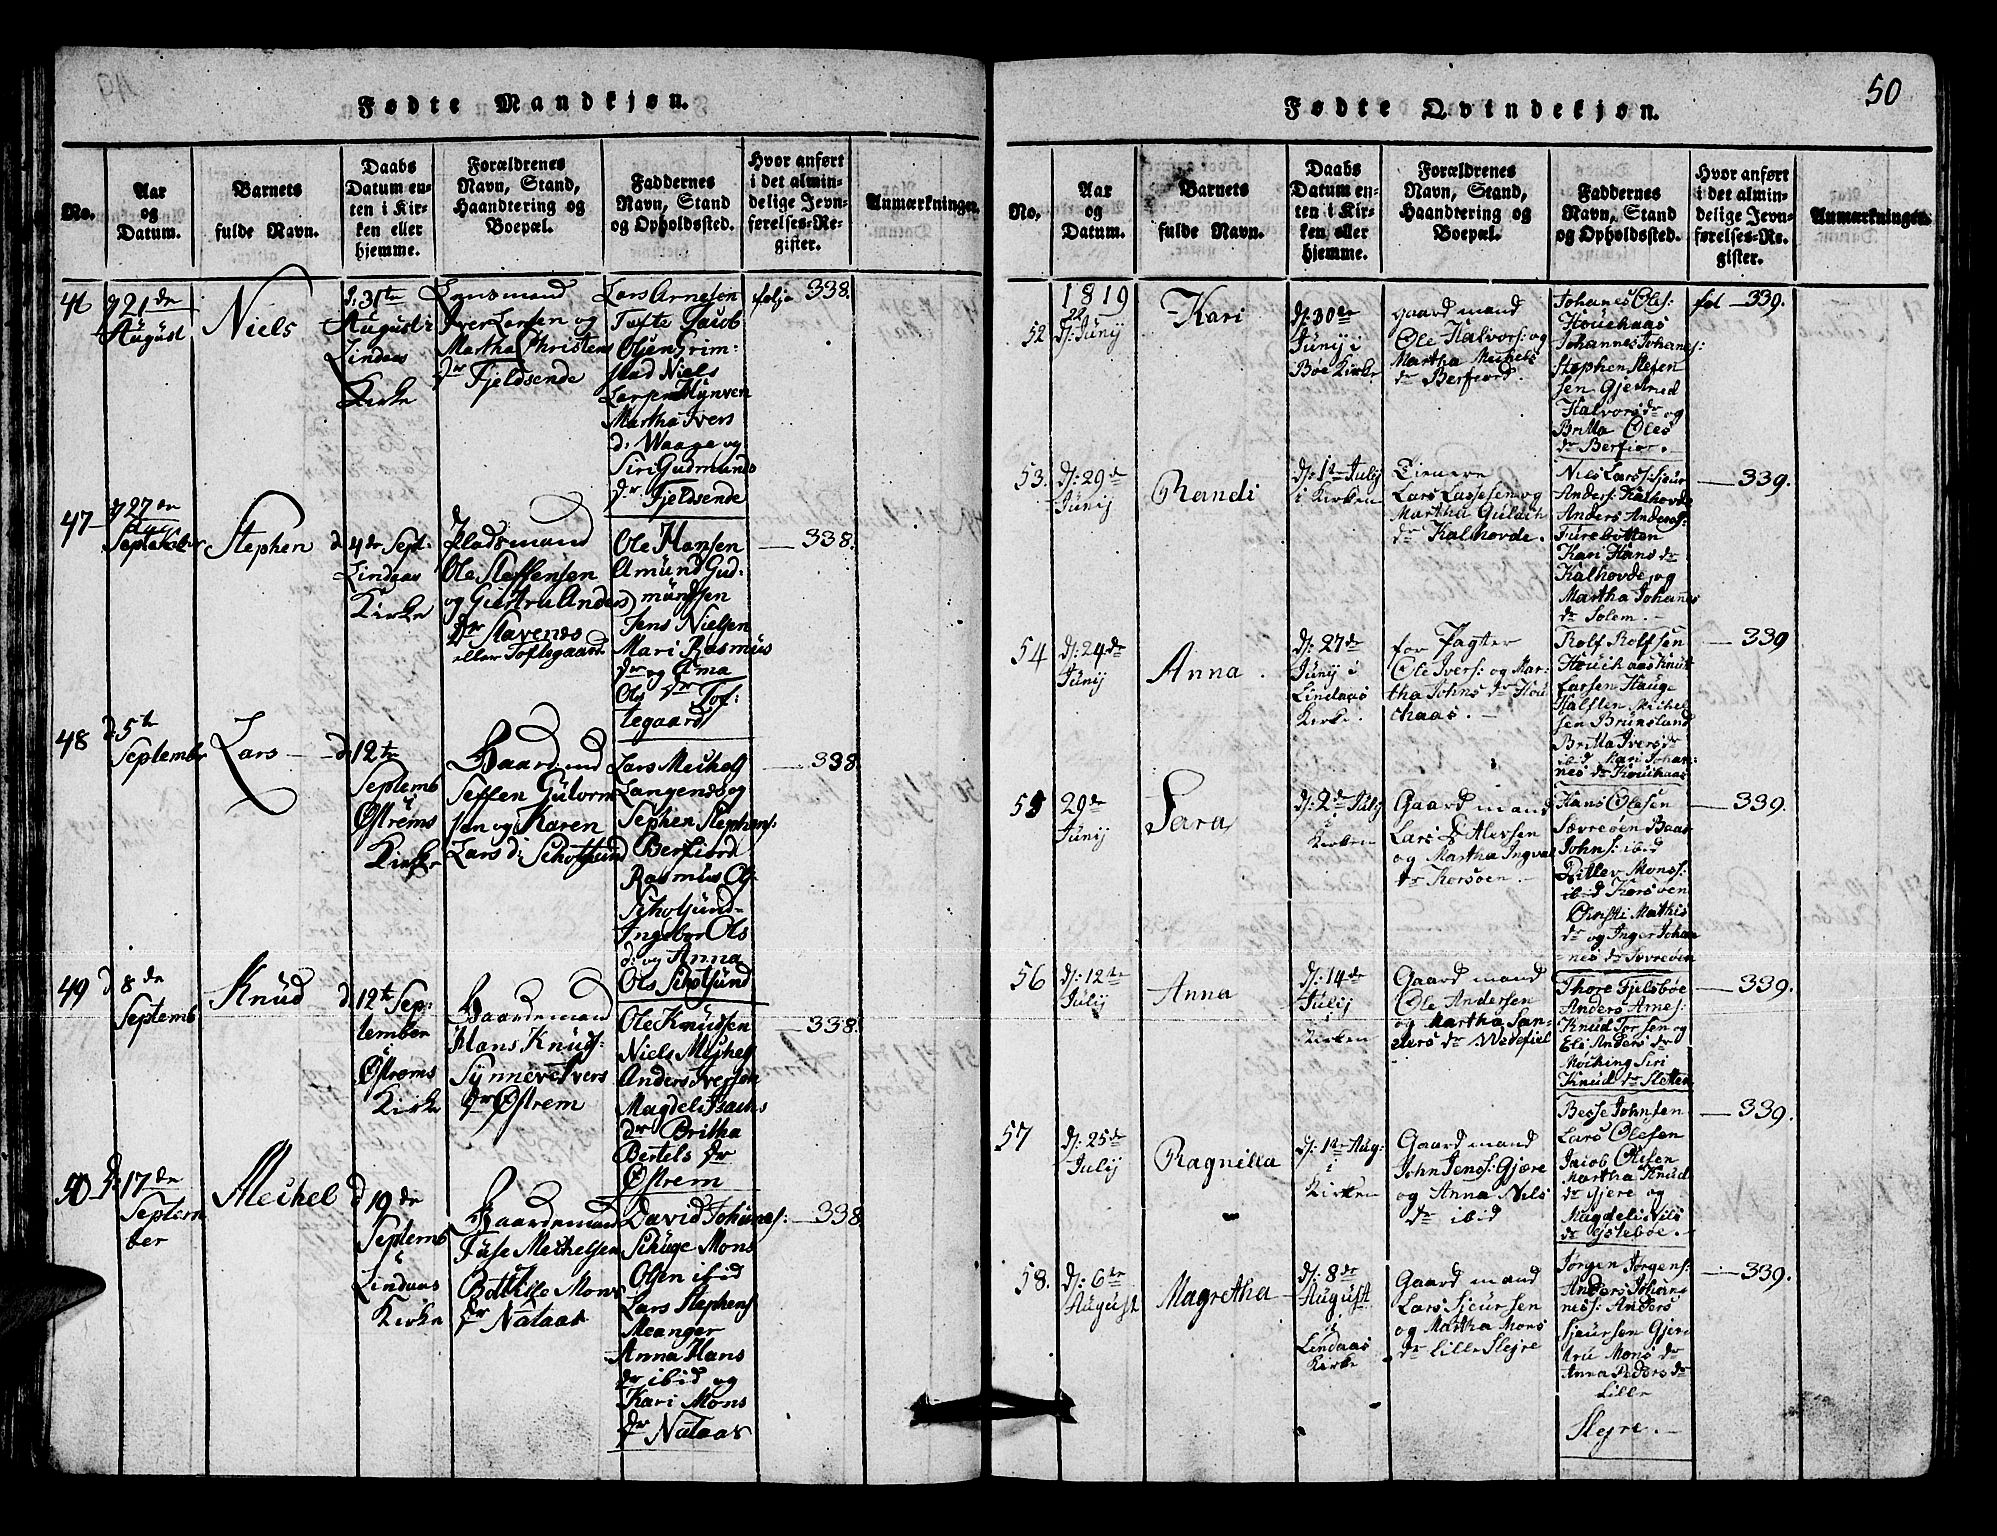 50
Fødte Mandkjøn.
No.
Aar
og
Datum.
Barnets
fulde Navn.
Daabs
Datum en-
ten i Kir-
ken eller
hjemme.
Forældrenes
Navn, Stand,
Haandtering og
Boepæl.
Faddernes
Navn, Stand
og Opholdssted.
Hvor anført
i det almin-
delige Jevn-
førelses-Re-
gister.
Anmærkninger.
46
d 21de
August
Niels
d: 31te
August i
Lindaas
Kirke
Lensmand
Iver Larsen og
Martha Christens
dr Fjeldsende
Lars Arnesen
Tufte Jacob
Olsen Grim-
stad Niels
Martha Ivers
d: Waage og
Siri Gudmunds
dr Fjeldsende
338.
47
d 27de
Stephen
d 4de Sept:
Lindaas
Kirke
Pladsmand
Ole Steffensen
og Giertru Anders
dr Stavenes
eller Toftegaard
Ole Hansen
Amund Gud-
mundsen
Jens Nielsen
Mari Rasmus
dr og
Ols dr Tof-
tegaard
338.
48
d 5te
September
Lars
d 12te
Septemb
i
Østrems
Kirke
Gaardmand
Steffen Gutorm
sen og Karen
Lars d: Schotsund
Lars Mechel
Langenes og
Stephen Stephens:
Berfiord
Rasmus Ol-
Schotsund-
Ingebor Ols
d: og Anna
Ols Schotsund
338
49
d 8de
Septemb
Knud
d 12te Sep-
tember
i
Østrems
Kirke
Gaardemand
Hans Knuds-
Synneve Ivers
dr Østrem
Ole Knudsen
Niels Mechel
Anders Iversen
Magdeli Bachs
dr Britha
Bertels dr
Østrem
338.
50
d: 17de
Septem
ber
Mechel
d 19de
Septemb
i
Lindaas
Kirke
Gaardemand
Tufse Mechelsen
Bothilo Mons
dr Nataas
David Johanes:
Schuge Mons
Olsen ibid
Lars Stephens
Meanger
Anna Hans
dr ibid og
Kari Mons
dr Nataas
338
Fødte Qvindekjøn.
No.
Aar
og
Datum.
Barnets
fulde Navn.
Daabs
Datum en-
ten i Kir-
ken eller
hjemme.
Forældrenes
Navn, Stand,
Haandtering og
Boepæl.
Faddernes
Navn, Stand
og Opholdssted.
Hvor anført
i det almin-
delige Jevn-
førelses-Re-
gister.
Anmærkninger.
1819
52
d: 22 Junij
Kari
d: 30te
Junij i
Bøe Kirke
gaard mand
Ole Halvors: og
Martha Mechels
dr Berfiord.
Johanes Oles:
Houchaas
Johannes Johanes:
Stephen Stefen
sen Gjesned
Halvors dr og
Britta Oles
dr Berfior.
fol 339.
53.
d: 29de
Junij
Randi
d: 1te Julij
i Kirken
Lars Lassesen og
Martha Guldch
dr Kalhovde.
Niels Lars: Sjeur
Anders: Kalhovde
Anders Anders:
Turebotten
Kari Hans dr
Kalhovde og
Martha Johanes
dr Solem.
339.
54
d: 24de
Junij
Anna.
d: 27de
Junij i
Lindaas
Kirke.
for Pagter
Ole Ivers: og Mar-
tha Johns dr Hou
chaas.
Rolf Rolfsen
Houchaas Knut
Larsen Hauge
Halsten Mechel
sen Brunsland
Britta Ivers dr
ibid Mari Johan-
nes dr Houchaas
339
55
29de
Junij
Sara
d: 2de Julij
i
Kirken
Gaard mand
Lars Ditlevsen
og Martha Ingval
dr Korsøen.
Hans Olesen
Sævreøen Baar
Johns: ibid
Ditlev Mons:
ibid Korsøen
Christi Mathis
dr og Inger Johan
nes dr Sævreøen
339.
56
d: 12te
Julij
Anna
d: 14de
Julij
i
Kirken
Gaard mand
Ole Andersen
og Martha San-
ders dr Wedefiel
Thore Fjelsbøe
Anders Arnes:
Knud Torsen og
Eli Anders dr
Møching Siri
Knud dr Sletten
339.
57
d: 25de
Julij
Ragnilla
d: 1te Aug:
i
Kirken
Gaard mand
John Jens: Gjære
og Anna Niels
dr ibid
Besse Johnsen
Lars Olesen
Jacob Olesen
Martha Knud
dr Gjere og
Magdeli Nils
dr Kjøtebøe.
339.
58.
d: 6te
August
Magretha
d: 8de
August
i
Lindaas
Kirke
Gaard mand
Lars Sjeursen
og Martha Mons
dr Lille Slejre
Jørgen Jørgens:
Anders Johan
nes: Anders
Sjeursen Gjer
tru Mons dr
Anna Peders dr
Lille
Slejre.
339.